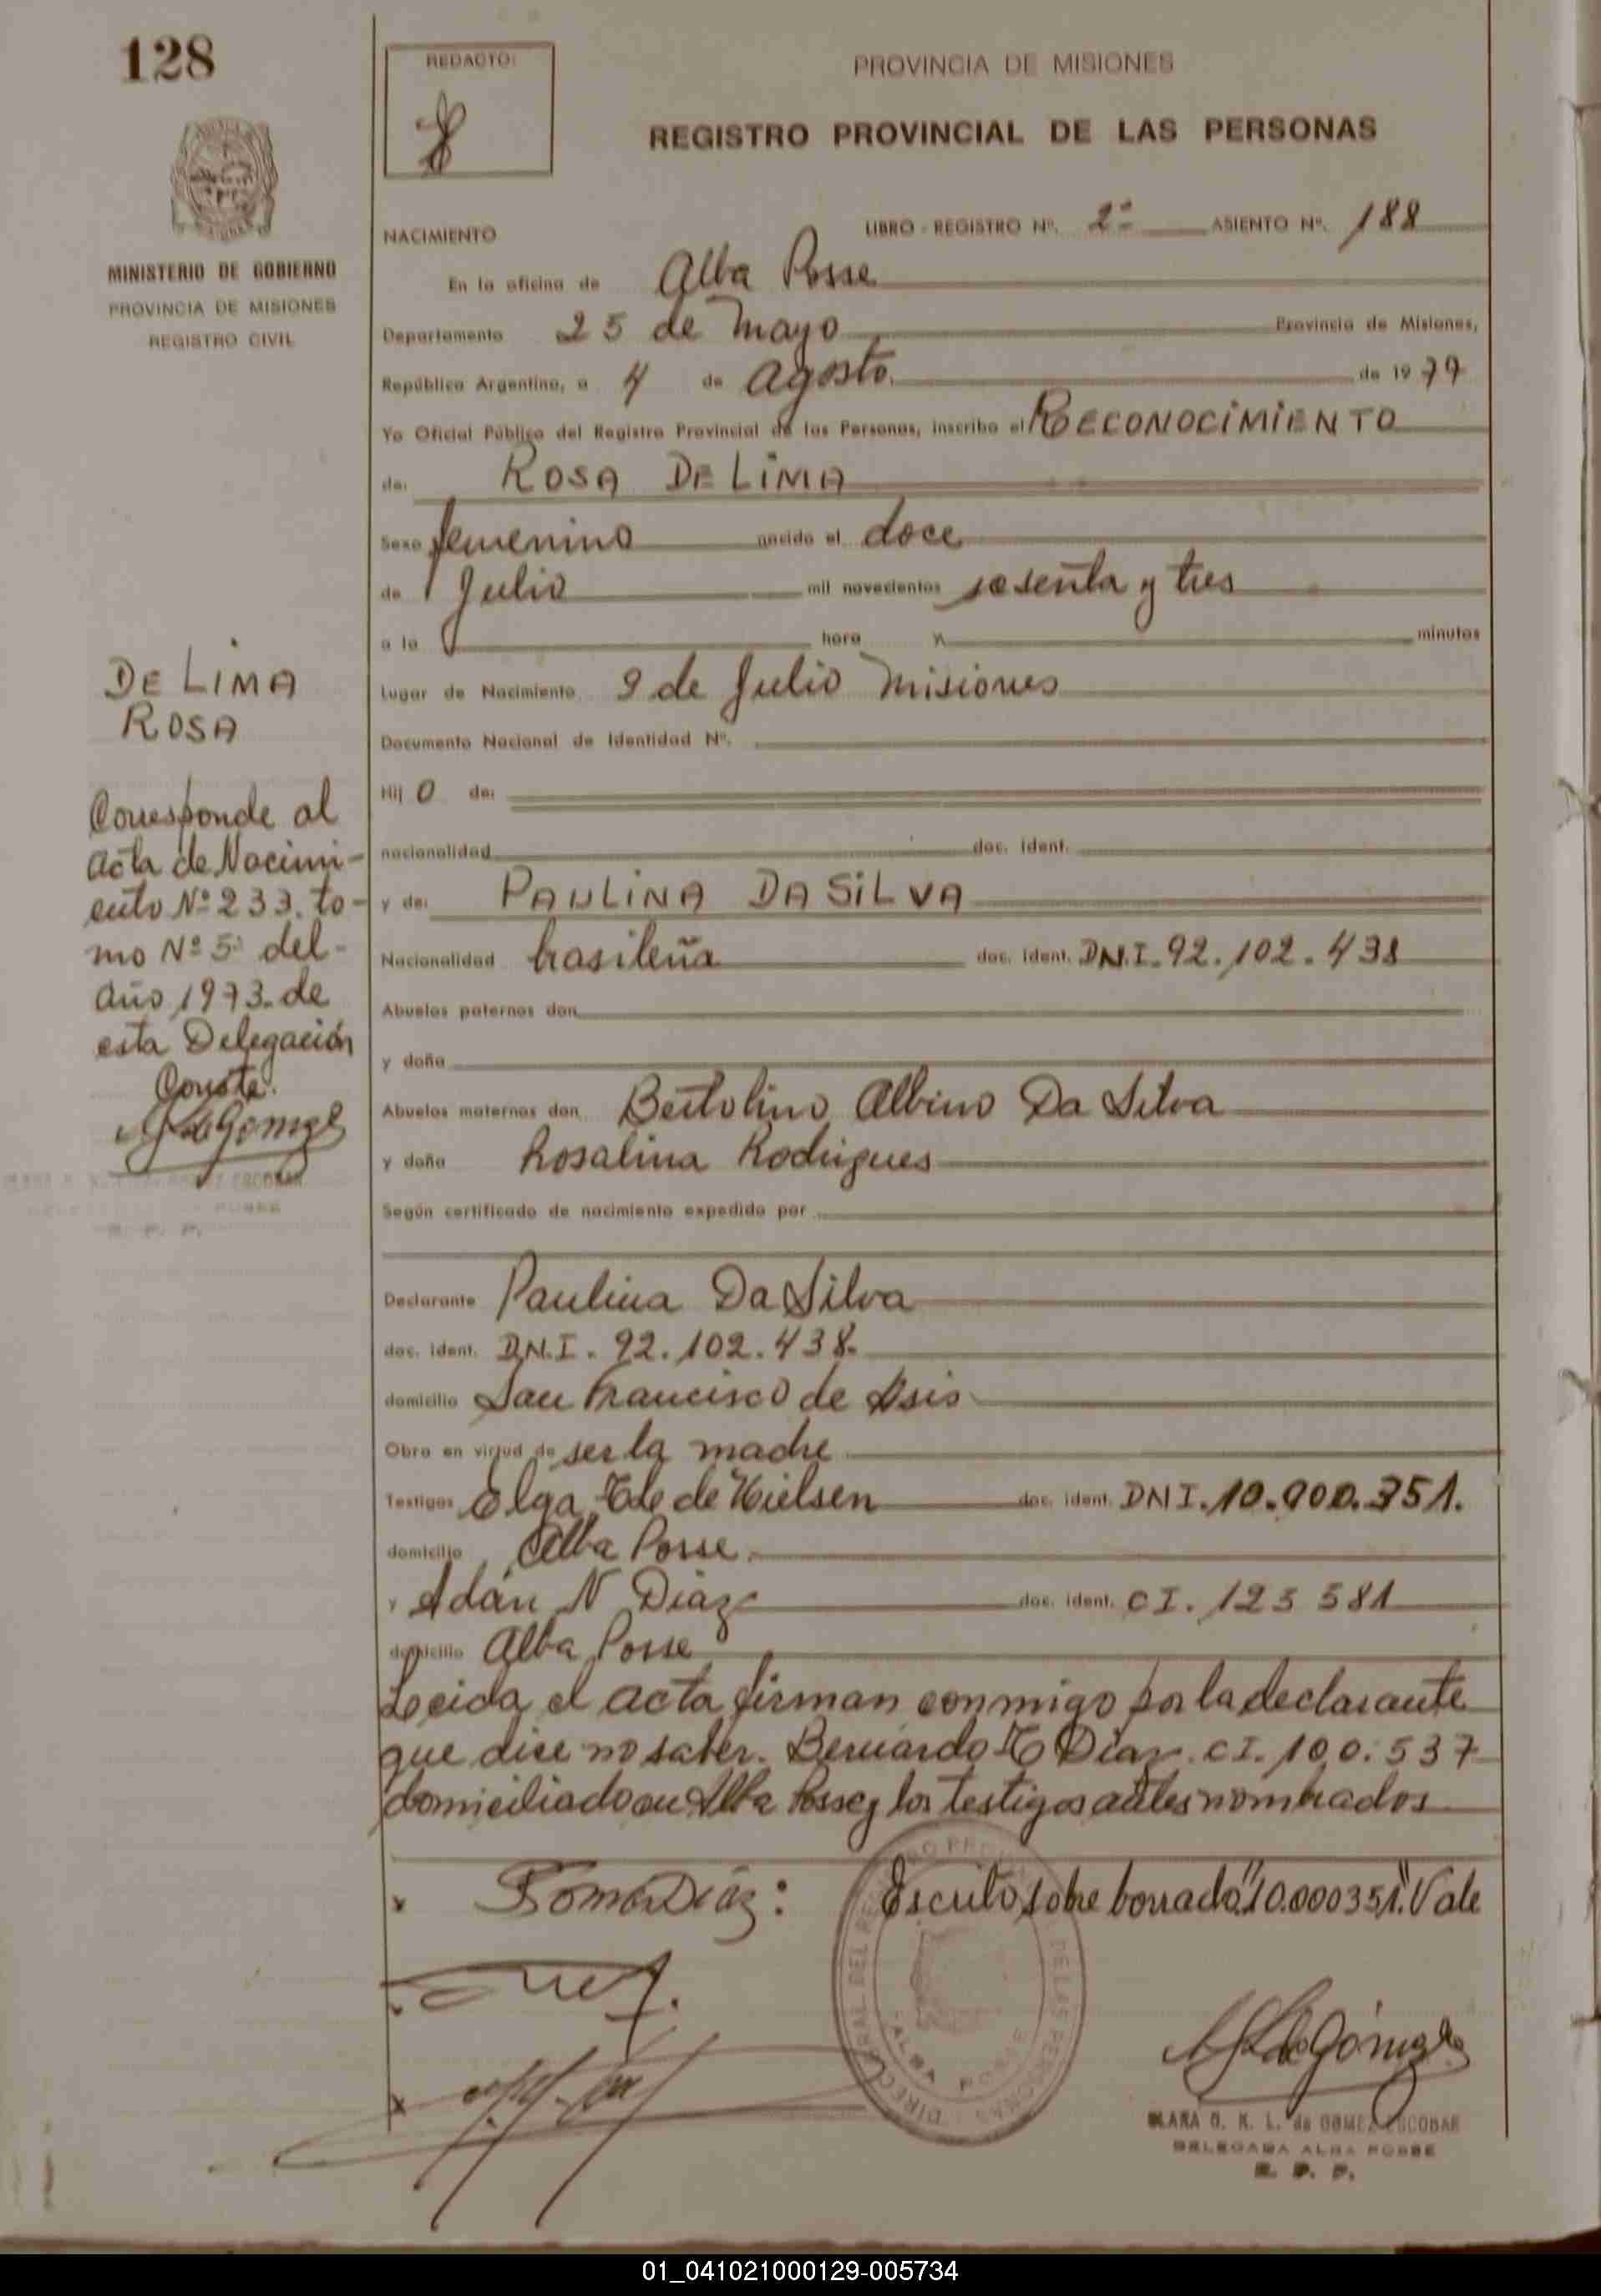 128
REDACTO:
PROVINCIA DE MISIONES
REGISTRO PROVINCIAL DE LAS PERSONAS
MINISTERIO DE GOBIERNO
PROVINCIA DE MISIONES
REGISTRO CIVIL
NACIMIENTO
LIBRO - REGISTRO Nº. 2º ASIENTO Nº. 188
En la oficina de Alba Posse
Departamento 25 de Mayo Provincia de Misiones,
República Argentina, a 4 de Agosto de 1979
Yo Oficial Público del Registro Provincial de las Personas, inscribo el RECONOCIMIENTO
de: ROSA DE LIMA
Sexo femenino nacido el doce
de Julio mil novecientos sesenta y tres
a la hora y minutos
Lugar de Nacimiento 9 de Julio Misiones
Documento Nacional de Identidad Nº.
Hij o de:
nacionalidad doc. ident.
y de: PAULINA DA SILVA
Nacionalidad brasileña doc. ident. DN.I. 92.102.438
Abuelos paternos don
y doña
Abuelos maternos don Bertolino Albino Da Silva
y doña Rosalina Rodrigues
Según certificado de nacimiento expedido por
Declarante Paulina Da Silva
doc. ident. D.N.I. 92.102.438.
domicilio San Francisco de Asis
Obra en virtud de ser la madre
Testigos Elga de Nielsen doc. ident. DNI. 10.900.351.
domicilio Alba Posse.
y Adán N Diaz doc. ident. CI. 123 581
domicilio Alba Posse
Leeida el acta firman conmigo por la declarante
que dice no saber. Bernardo Diaz. CI. 100.537
domiciliado en Alba Posse y los testigos antes nombrados
Escrito sobre borrado "10.000351". Vale
DE LIMA
ROSA
Corresponde al
Acta de Nacimi-
ento Nº 233. to-
mo Nº 5º del-
Año 1973. de
esta Delegación
Conste.
ALBA POSSE
CLARA G. K. L. de GOMEZ ESCOBAR
DELEGADA ALBA POSSE
R. P. P.
01_041021000129-005734